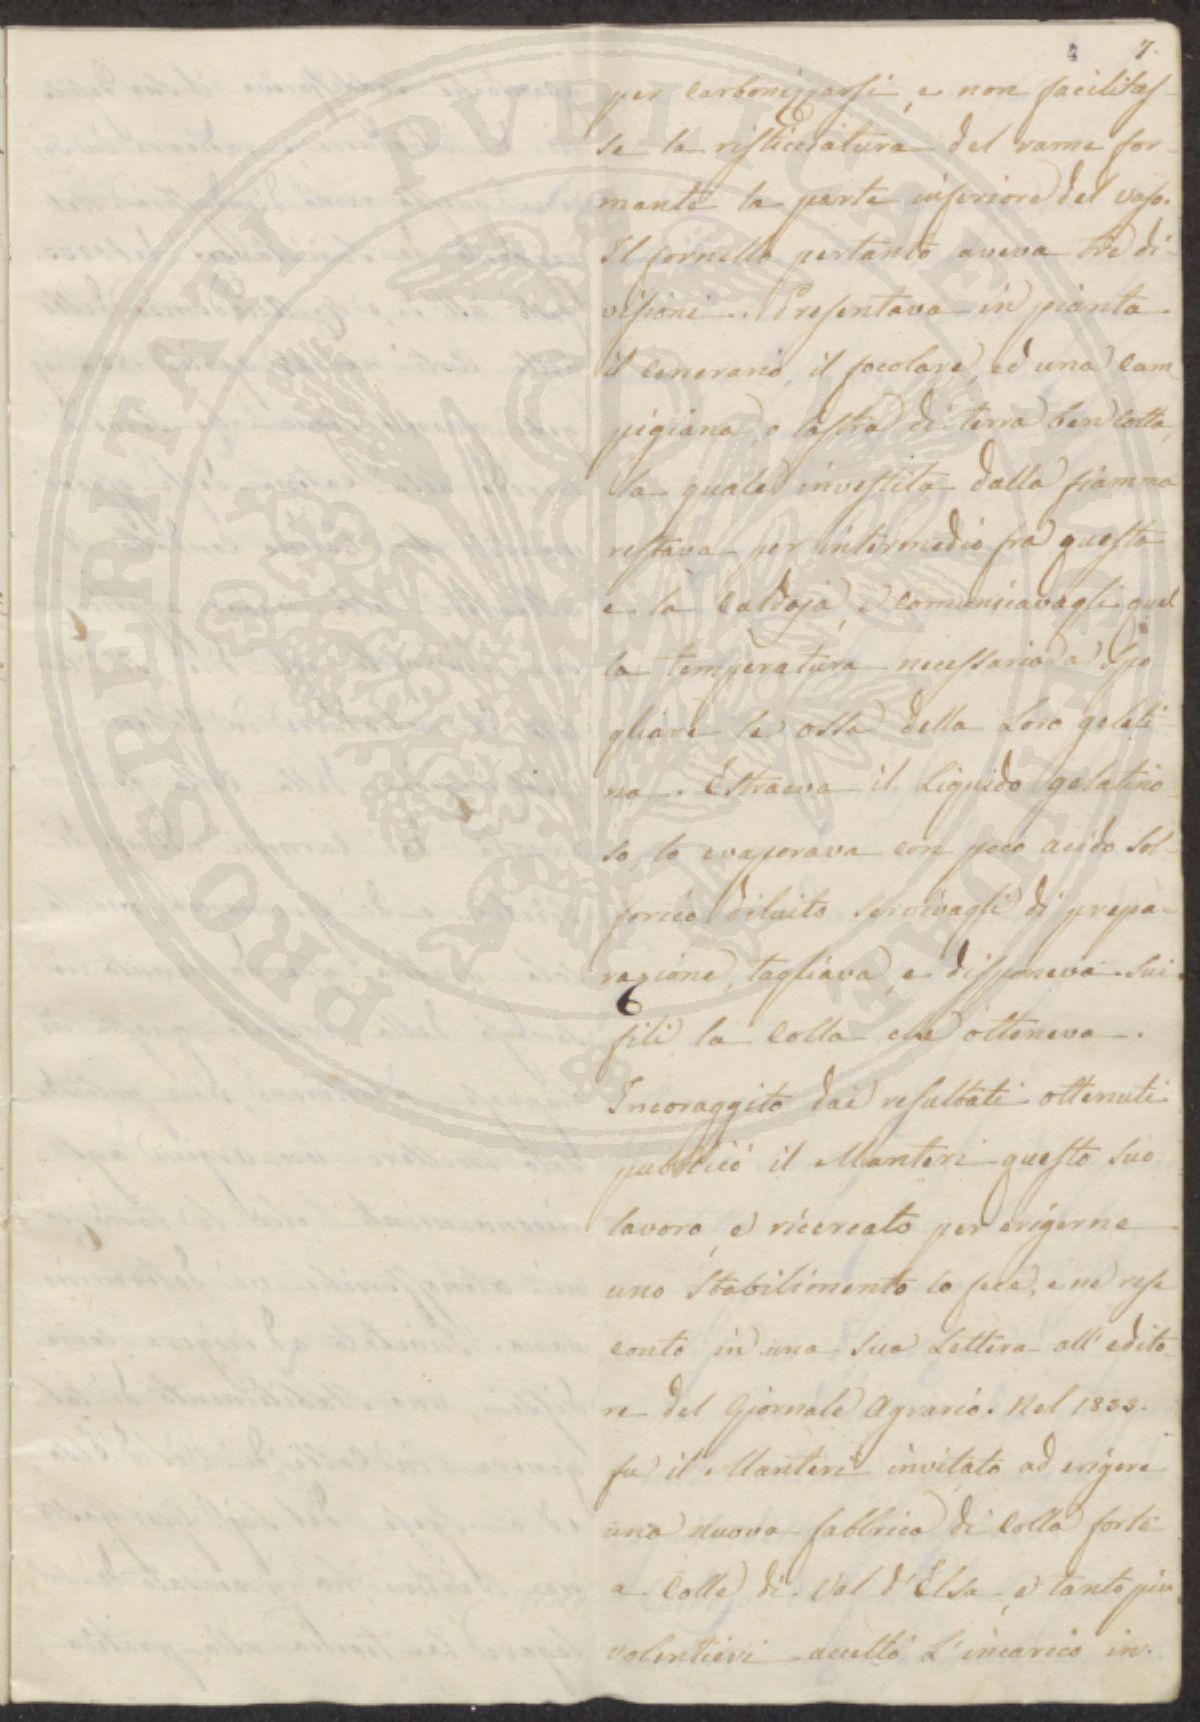 4 7.
per carbonizzarsi, e non facilitas-
se la risticciatura del rame for-
mante la parte inferiore del vaso.
Il fornello pertanto aveva tre di-
visioni. Presentava in pianta
il cenerario, il focolare, ed una cam
pigiana, o lastra di terra ben cotta,
la quale investita dalla fiamma
restava per intermedio fra questa
e la caldaja, e comunicavagli quel
la temperatura necessaria a spo
gliare le ossa della Loro gelati-
na. Estraeva il Liquido gelatino-
so, lo evaporava con poco acido Sol-
forico diluito servivagli di prepa-
razione, tagliava, e disponeva sui
6
fili la Colla che otteneva.
Incoraggito dai resultati ottenuti
pubblicò il Manteri questo suo
lavoro, e ricercato per erigerne
uno Stabilimento lo fece, e ne rese
conto in una sua Lettera all' edito-
re del Giornale Agrario. Nel 1833.
fu il Manteri invitato ad erigere
una nuova fabbrica di Colla forte
a Colle di Val d'Elsa, e tanto più
volentieri accettò L'incarico in-
PROSPERITATI PUBLICAE AUGENDAE